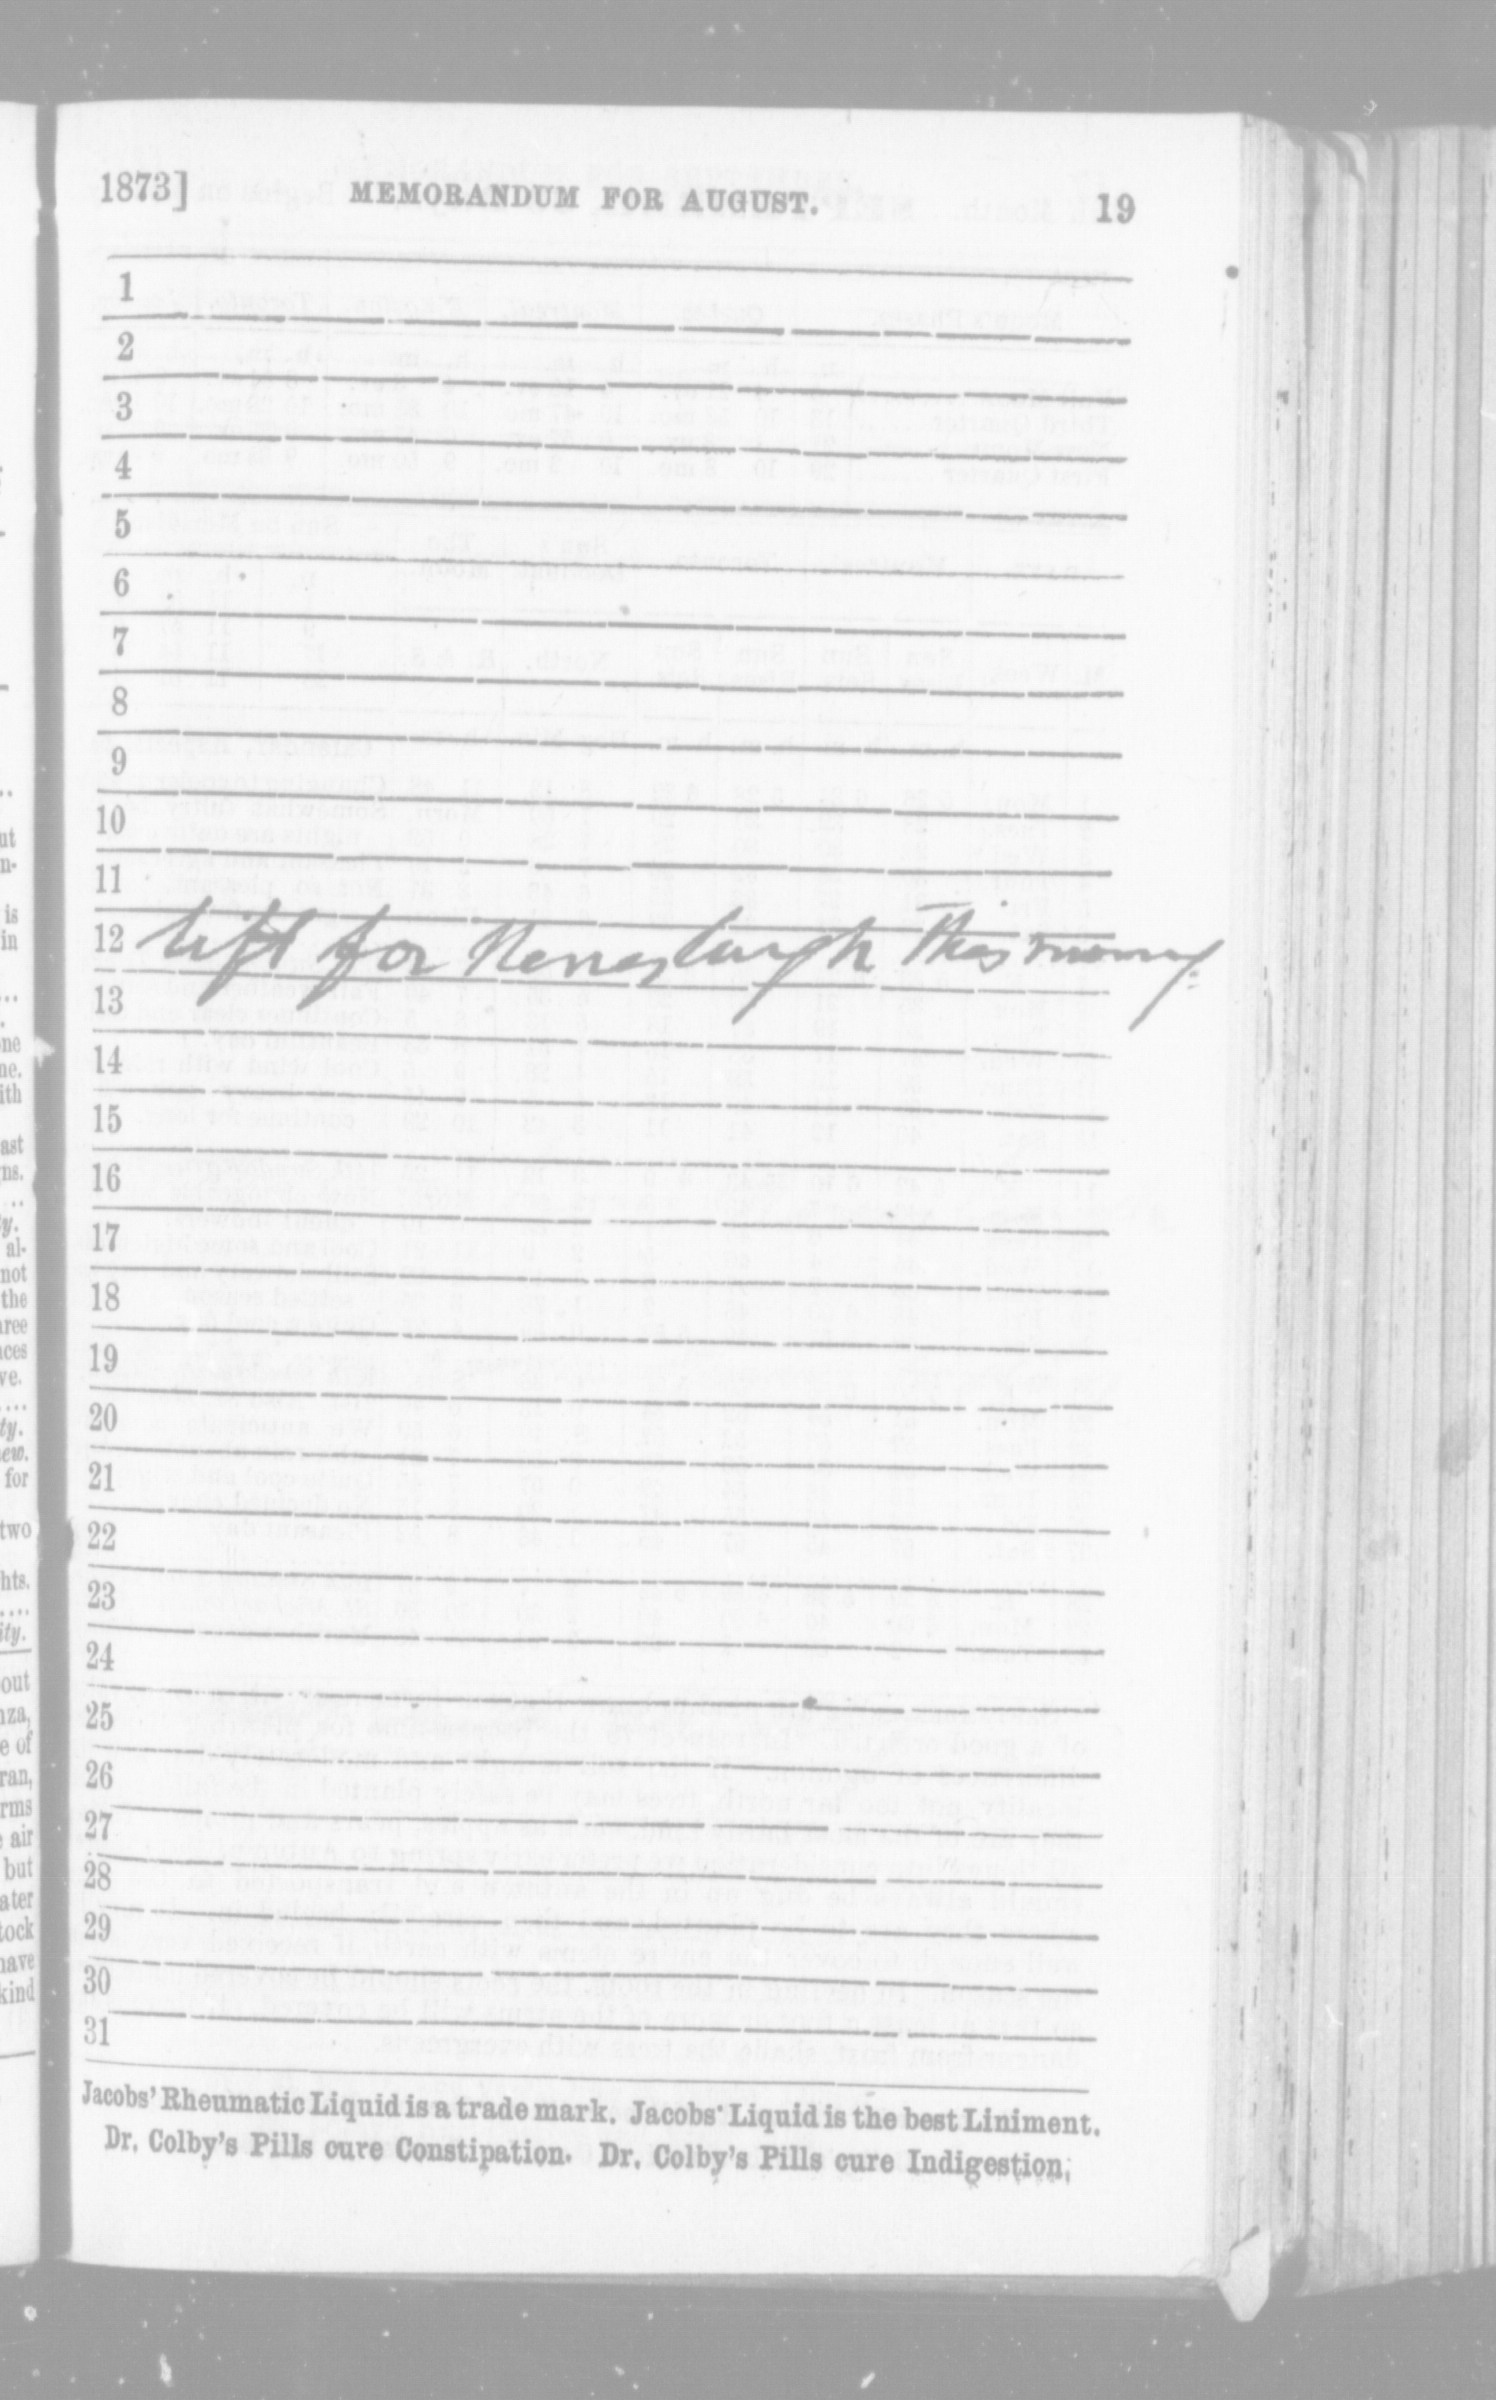 1873] MEMORANDUM FOR AUGUST. 19
1
2
3
4
5
6
7
8
9
10
11
12 left for this morng
13
14
15
16
17
18
19
20
21
22
23
24
25
26
27
28
29
30
31
Jacobs' Rheumatic Liquid is a trade mark. Jacobs' Liquid is the best Liniment.
Dr. Colby's Pills cure Constipation. Dr. Colby's Pills cure Indigestion,